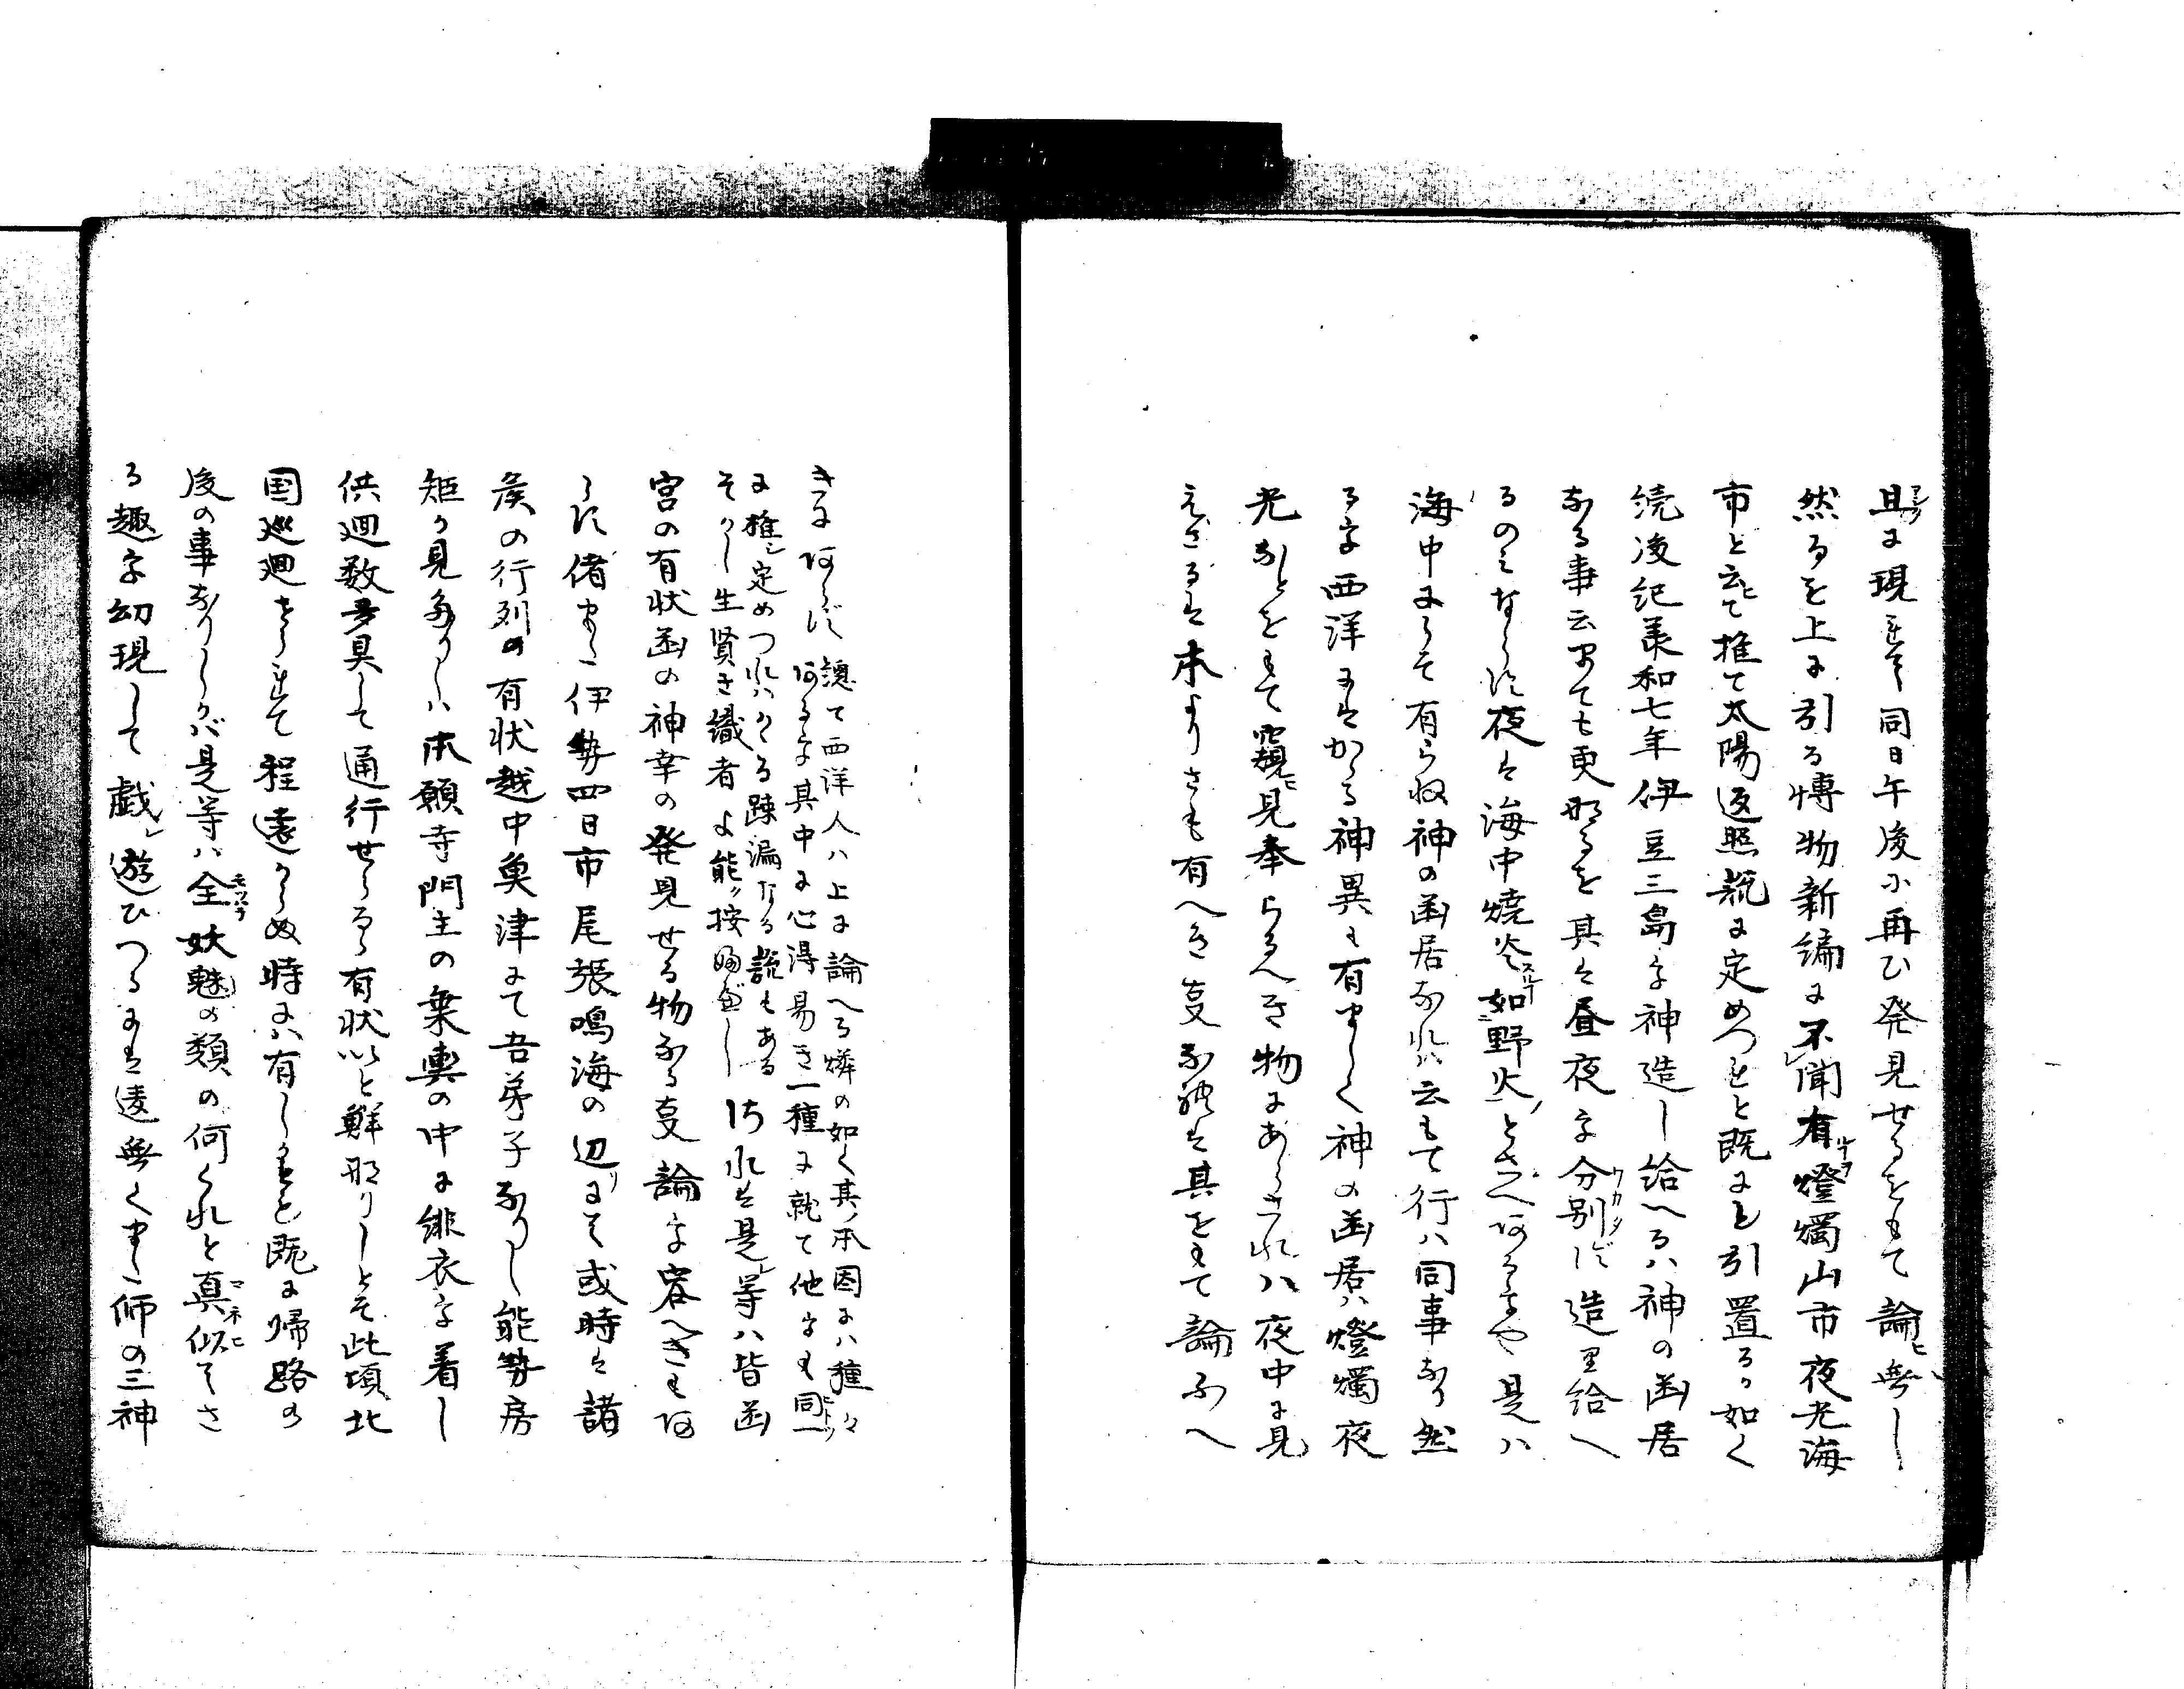 且に現はれて同日午後に再ひ発見せるをもて論無し
然るを上に引る博物新編に不聞有燈燭山市夜光海
市と云て推て太陽返照説に定めつをと既にも引置るか如く
続後紀承和七年伊豆三島に神造し給へるハ神の函居
なる事云まても更なるを其は昼夜を分別す造里給へ
るのみならす夜は海中焼炎如野火とさへあるをや是ハ
海中にして有ら収神の函居なれハ云もて行ハ同事なり然
るを西洋にはかゝる神異も有ましく神の函居ハ燈燭夜
光なとをもて窺見奉らるへき物にあらされハ夜中に見
えさるは本よりさも有へき事なれは其をもて論ふへ
きにあらす
総て西洋人ハ上に論へる燐の如く其本因にハ種々
あるを其中に心得易き一種に就て他をも同一
に推定めつれハかゝる疎漏なる説もある
そかし生賢き識者よ能々按ふへし
されは是等ハ皆函
宮の有状函の神幸の発見せる物なる事論を容へきもあ
らす偖また伊勢四日市尾張鳴海の辺にて或時は諸
侯の行列の有状越中魚津にて吾弟子なりし能勢房
矩か見たりしハ本願寺門主の乗輿の中に緋衣を着し
供廻数多具して通行せらるる有状いと鮮なりしとそ此頃北
国巡廻せられて程遠からぬ時にハ有しかとも既に帰路の
後の事なりしかハ是等ハ全妖魅の類の何くれと真似てさ
る趣を幻現して戯遊ひつるには違無くまた師の三神